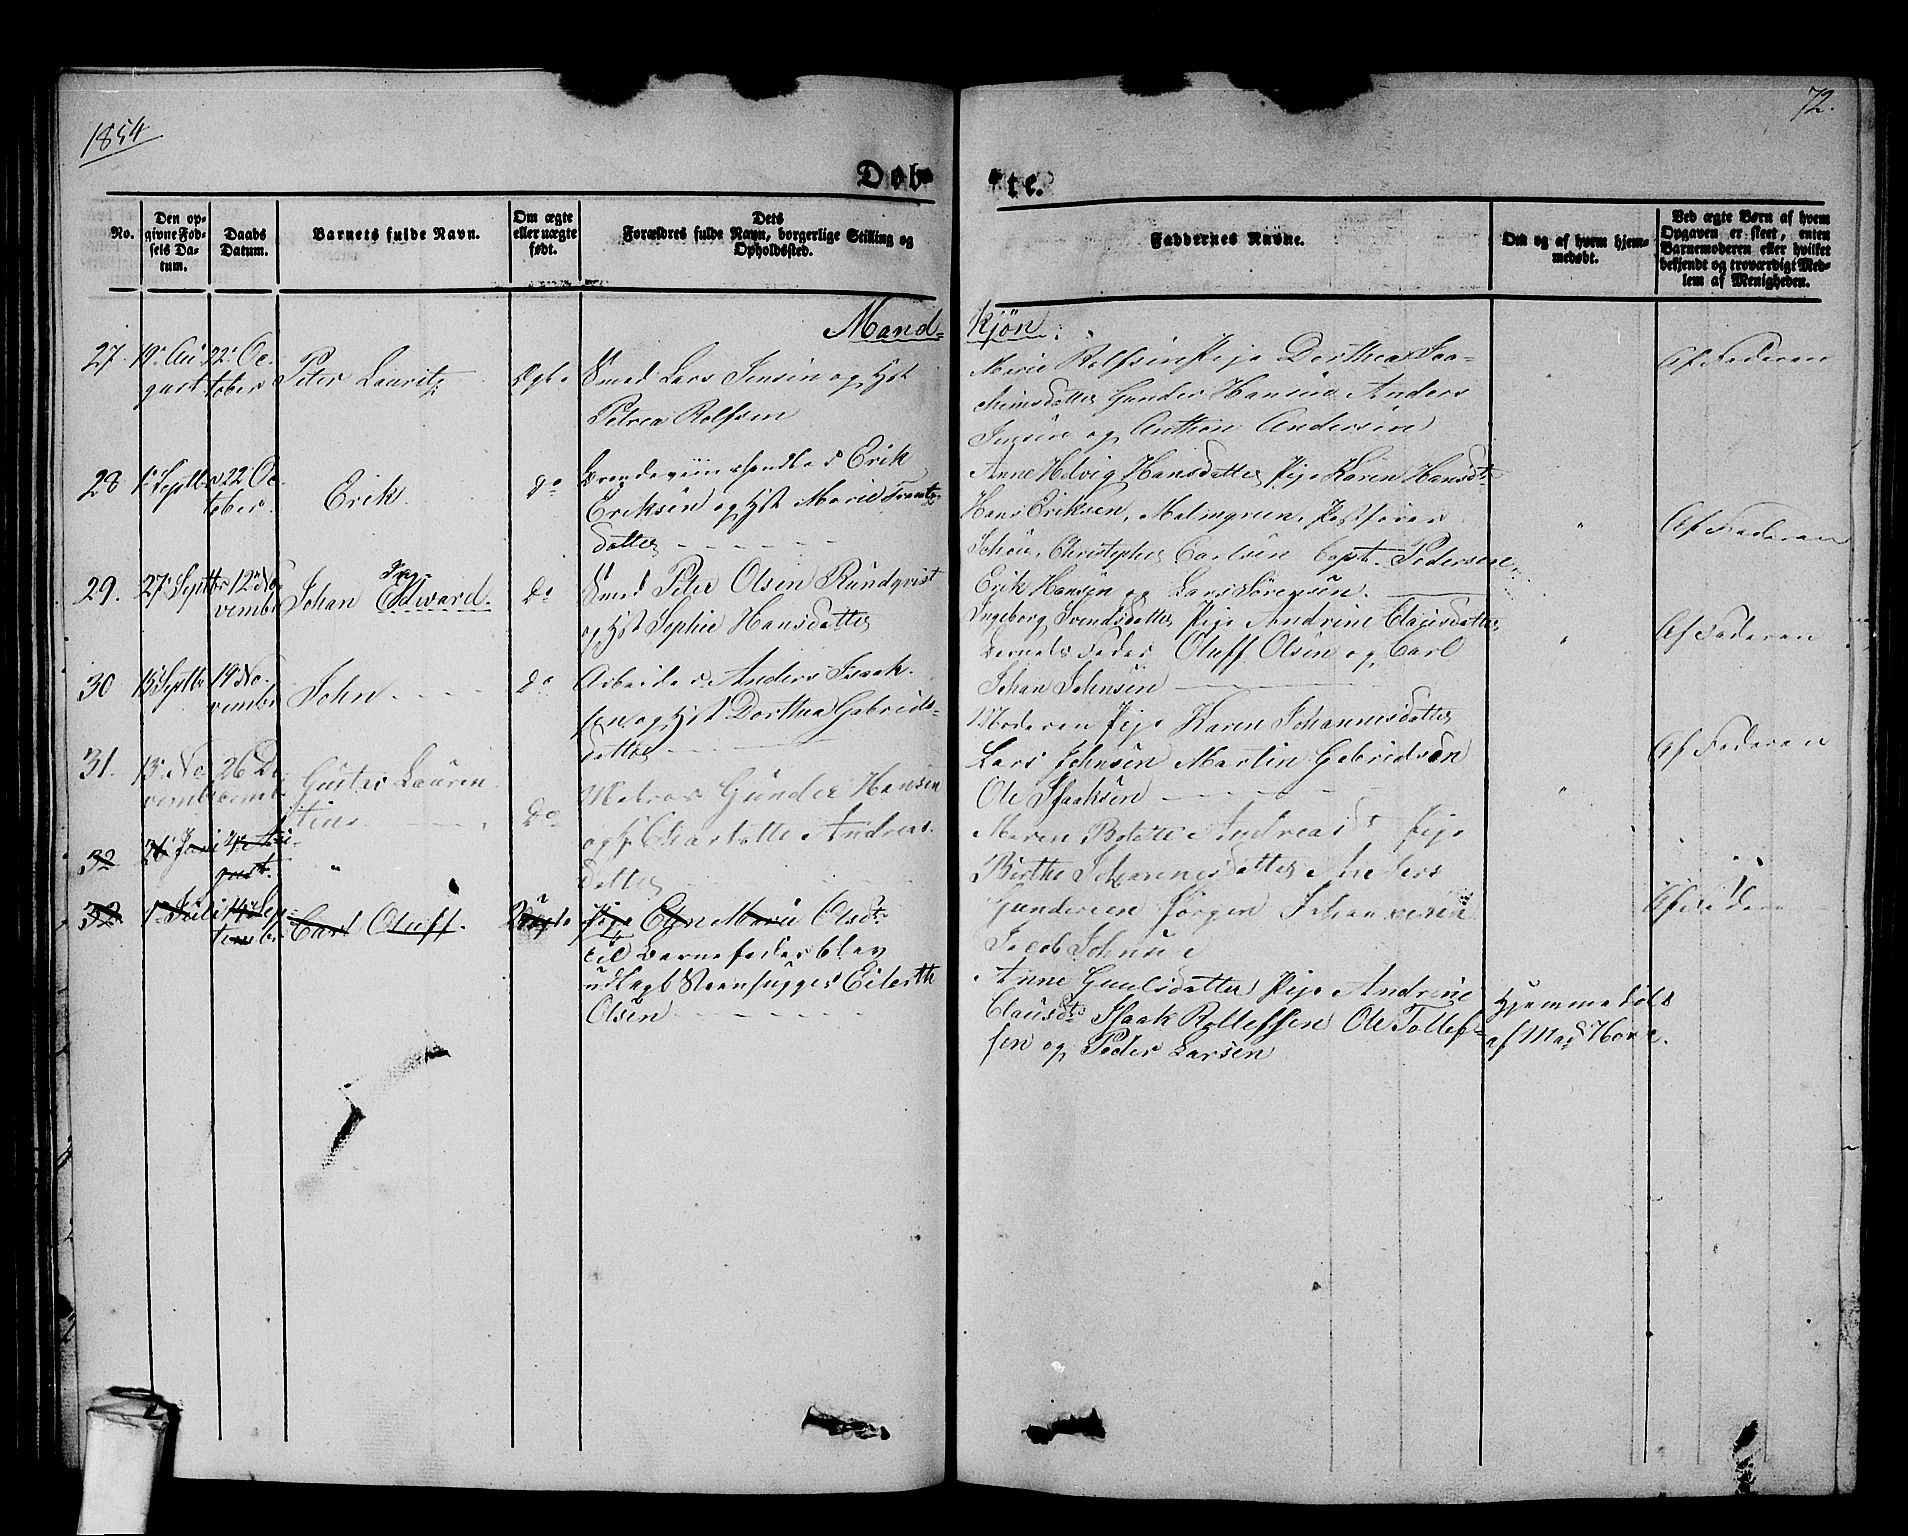 1854
72.
Døb-
te.
No.
Den op-
givne Fød-
sels Da-
tum.
Daabs
Datum.
Barnets fulde Navn.
Om ægte
eller uægte
født.
Dets
Forældres fulde Navn, borgerlige Stilling og
Opholdssted.
Faddernes Navne.
Om og af hvem hjem-
medøbt.
Ved ægte Børn af hvem
Opgaven er skeet, enten
Barnemoderen eller hvilket
bekjendt og troværdigt Med-
lem af Menigheden.
Mand-
kjøn:
27.
19. Au
gust
22. Oc
tober
Peter Lauritz
Ægte
Smed Lars Jensen og Hst
Petrea Rolfsen
Marie Rolfsen Pige Dorthea Joa-
chimsdatter Gunder Hansen Anders
Jensen og Anthon Andersen
Af Faderen
28
1. Septbr
22 Oc
tober.
Erik
do
Brændeviinshandler Erik
Eriksen og Hst Marie Frantz
datter
Anne Helvig Hansdatter Pige Karen Hansdtr
Hans Eriksen, Malmgreen,
Schou, Christopher Carlsen Capt. Pedersen,
Erik Hansen og Lars Sørensen.
Af Faderen
29.
27. Septbr
12. No
vembr
Johan Edward.
do
Smed Peter Olsen Rundqvist
og Hst Sophie Hansdatter
Ingeborg Svendsdatter Pige Andrine Clausdatter
Barnets Fader Oluff Olsen og Carl
Johan Johnsen
Af Faderen
30
13 Septbr
19 No-
vembr
John
do
Arbeider Anders Isaak-
sen og Hst Dorthea Gabriels-
datter
Moderen Pige Karen Johannesdatter
Lars Johnsen Martin Gabrielsen
Ole Isaaksen
Af Faderen
31.
13. No
vembr
26 De
cembr
Gustav Lauren
tius
do
Matros Gunder Hansen
og H. Charlotte Andreas
datter
Maren Andreasdr Pige
Birthe Johannesdatter Anders
Gundersen Jørgen Johannesen
Jacob Johnsen
Af Faderen
32
26 Juni
gust.
"
32
1. Juli
14 Sep
tembr
Carl Oluff.
Uægte
Pige Elen Marie Olsdtr
til Barnefader blev
udlagt Steenhugger Eilerth
Olsen
Anne Guulsdatter Pige Andrine
Clausdtr Isaak Rollefsen Ole Tollef-
sen og Peder Larsen
Hjemmedøbt
af Mad Horn.